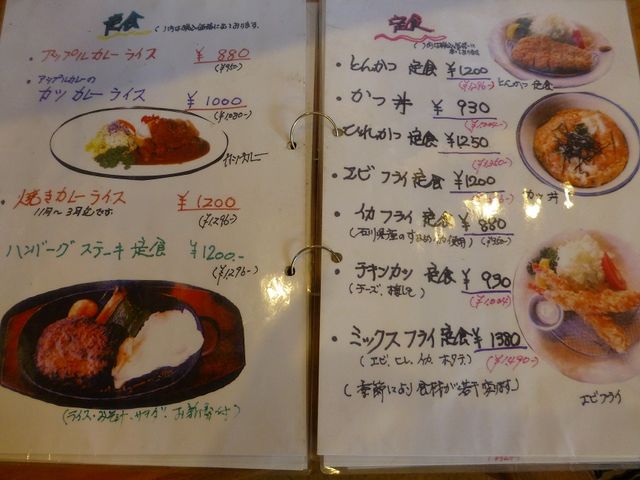 定食
( )内は税込価格になっております。
・アップルカレーライス ¥880
(¥950-)
・アップルカレーの
カツカレーライス ¥1000
(¥1080-)
・焼きカレーライス ¥1200
11月〜3月迄です。 (¥1296-)
ハンバーグステーキ定食 ¥1200.-
(¥1296-)
(ライス・みそ汁、サラダ、お新香付)
定食
・とんかつ定食 ¥1200
(¥1296-)
とんかつ定食
・かつ丼 ¥930
(¥1004-)
・ヒレかつ定食 ¥1250
・エビフライ定食 ¥1200
カツ丼
・イカフライ定食 ¥880
・チキンカツ定食 ¥930
(チーズ、梅しそ) (¥1004)
・ミックスフライ定食 ¥1380
(エビ、ヒレ、イカ、ホタテ) (¥1490-)
(季節により食材が若干変ります)
エビフライ